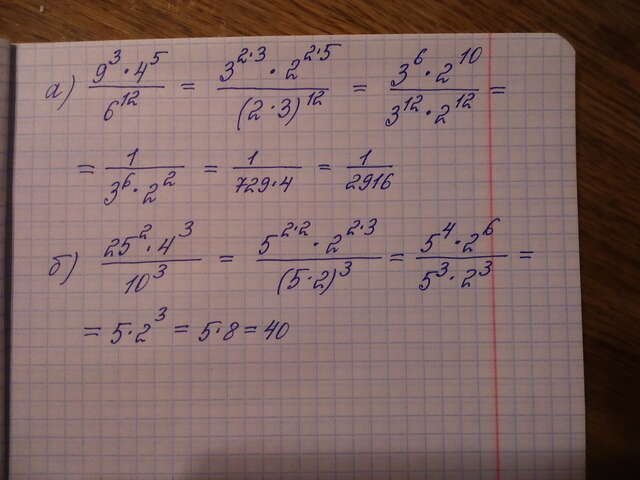 а) 9³·4⁵ / 6¹² = 3²·³·2²·⁵ / (2·3)¹² = 3⁶·2¹⁰ / 3¹²·2¹² =
= 1 / 3⁶·2² = 1 / 729·4 = 1 / 2916
б) 25²·4³ / 10³ = 5²·²·2²·³ / (5·2)³ = 5⁴·2⁶ / 5³·2³ =
= 5·2³ = 5·8 = 40